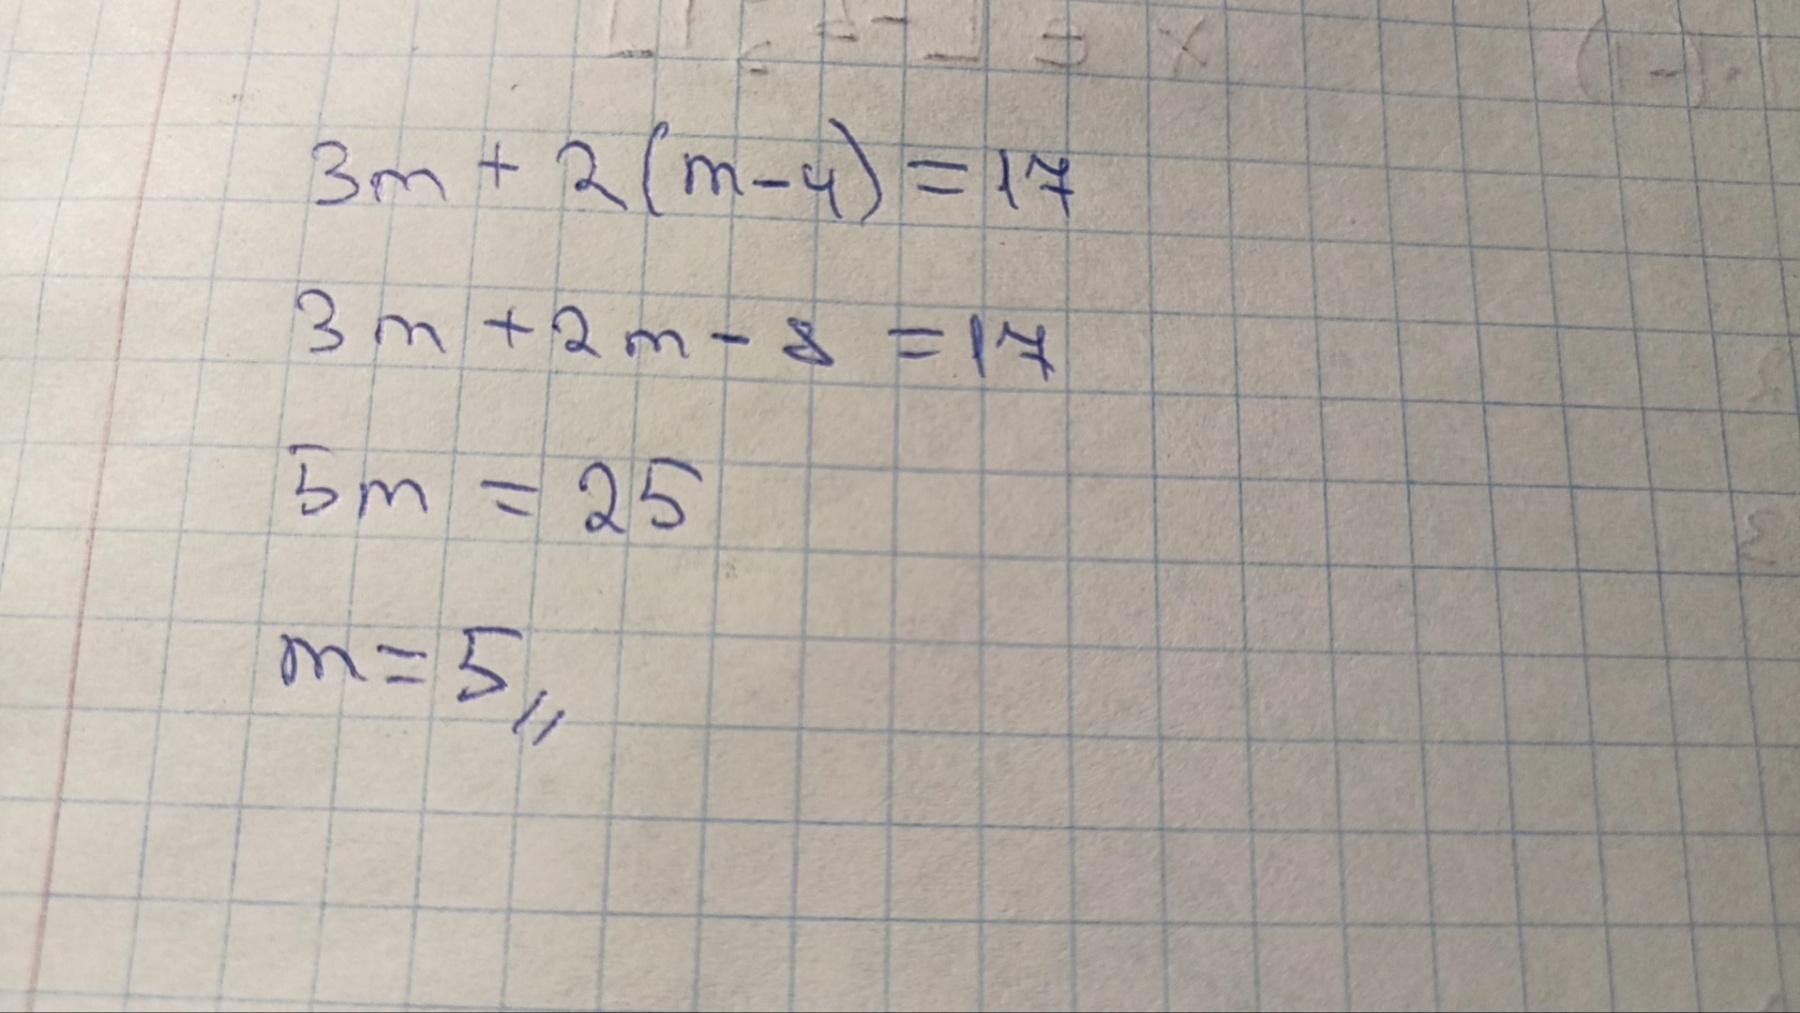 3m + 2(m-4) = 17
3m + 2m - 8 = 17
5m = 25
m = 5,,